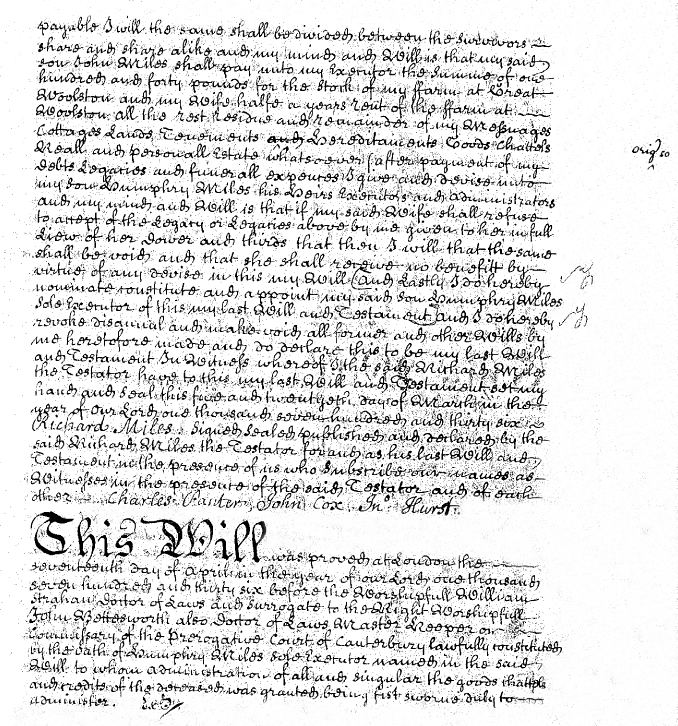 payable I will the same shall be divided between the survivors
share and share alike and my mind and Will is that my said
son John Miles shall pay unto my Executor the Summe of one
hundred and forty pounds for the stock of my ffarm at Great
Woolston and my Wife halfe a years rent of the ffarm at
Woolston all the rest residue and remainder of my Messuages
Cottages Lands Tenements and Hereditaments Goods Chattels
Reall and personall Estate whatsoever (after payment of my
debts Legacies and funerall expences I give and devise unto
my son Humphry Miles his Heirs Executors and Administrators
and my mind and Will is that if my said Wife shall refuse
to accept of the Legacy or Legacies above by me given to her in full
Liew of her Dower and thirds that then I will that the same
shall be void and that she shall receive no benefitt by
virtue of any devise in this my Will (and Lastly I do hereby
nominate constitute and appoint my said son Humphry Miles
sole Executor of this my last Will and Testament and I do hereby
revoke disanul and make void all former and other Wills by
me heretofore made and do declare this to be my last Will
and Testament In Witness whereof I the said Richard Miles
the Testator have to this my last Will and Testament set my
hand and seal this five and twentyeth day of March in the
year of our Lord one thousand seven hundred and thirty six
Richard Miles. Signed sealed published and declared by the
said Richard Miles the Testator for and as his last Will and
Testament in the presence of us who subscribe our names as
Witnesses in the presence of the said Testator and of each
other Charles Panter John Cox Jno. Hurst.
This Will was proved at London the
seventeenth day of April in the year of our Lord one thousand
seven hundred and thirty six before the Worshipfull William
Strahan Doctor of Laws and Surrogate to the Right Worshipfull
John Bettesworth also Doctor of Laws Master Keeper or
Commissary of the Prerogative Court of Canterbury lawfully constituted
by the oath of Humphry Miles sole Executor named in the said
Will to whom administration of all and singular the goods chattels
and credits of the deceased was granted being first sworne duly to
administer.
orig so